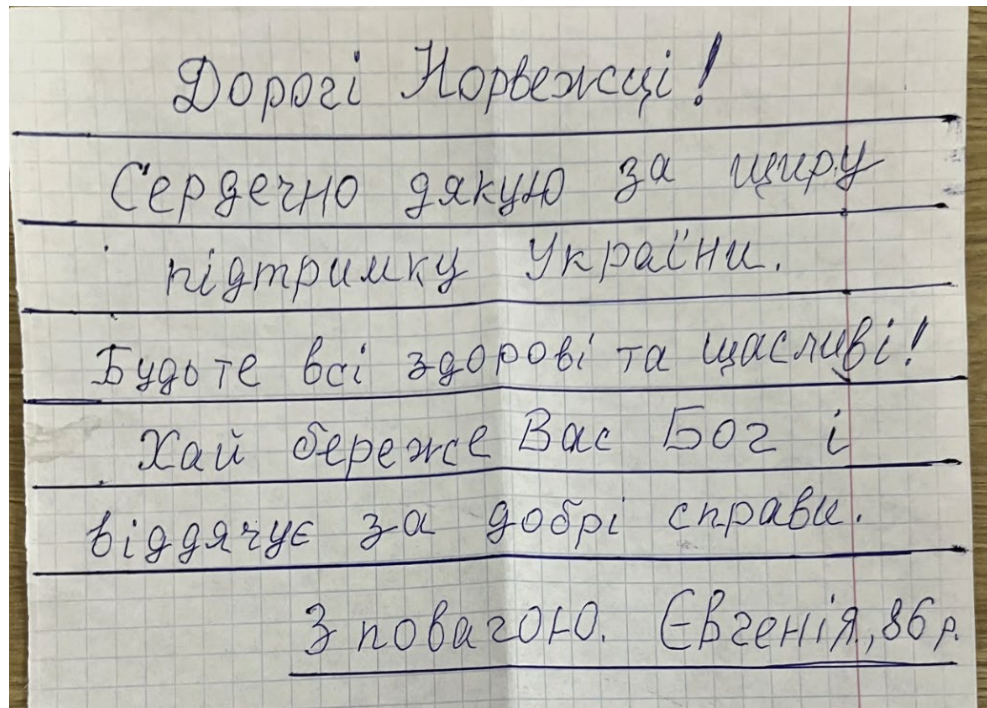 Дорогі Норвежці!
Сердечно дякую за щиру
підтримку України.
Будьте всі здорові та щасливі!
Хай береже Вас Бог і
віддячує за добрі справи.
З повагою. Євгенія, 86 р.